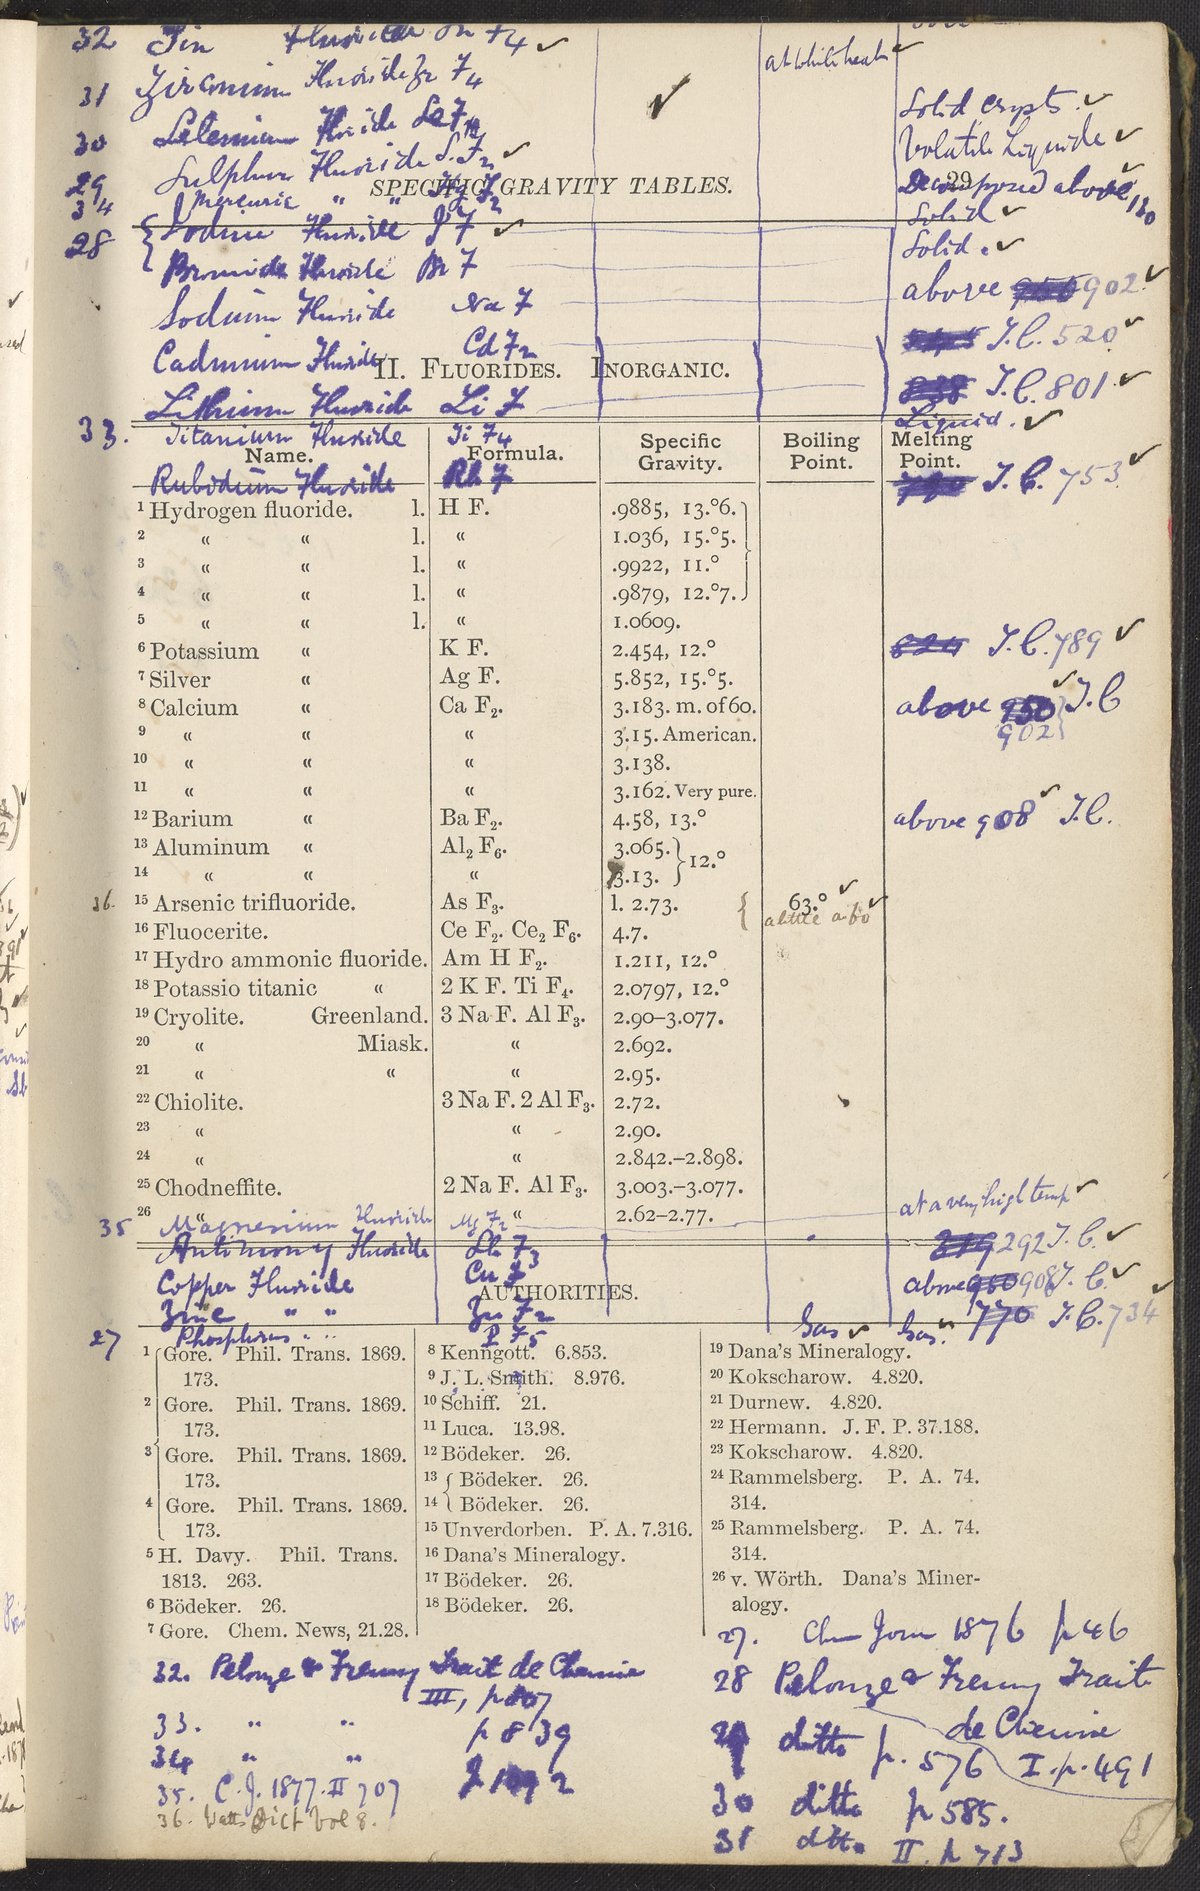 32 Tin Fluoride Sn F4 ✓
at white heat ✓
31 Zirconium Fluoride Zr F4 ✓
Solid crysts. ✓
30 Selenium Fluoride Se F
Volatile Liquide ✓
29 Sulphur Fluoride S. F2 ✓
Decomposed above 130 ✓
34 Mercuric " " Hg F2
SPECIFIC GRAVITY TABLES. 29
Solid ✓
28 { Iodine Fluoride I F ✓
Solid. ✓
Bromide Fluoride Br F
Sodium Fluoride Na F
above 902 ✓
Cadmium Fluoride Cd F2
T.C. 520 ✓
II. FLUORIDES. INORGANIC.
Lithium Fluoride Li F
T.C. 801 ✓
33. Titanium Fluoride Ti F4
Liquid. ✓
Name. Formula. Specific Gravity. Boiling Point. Melting Point.
Rubidium Fluoride Rb F
T.C. 753 ✓
1 Hydrogen fluoride. l. H F. .9885, 13.°6.
2 “ “ l. “ 1.036, 15.°5.
3 “ “ l. “ .9922, 11.°
4 “ “ l. “ .9879, 12.°7.
5 “ “ l. “ 1.0609.
6 Potassium “ K F. 2.454, 12.° 824 T.C. 789 ✓
7 Silver “ Ag F. 5.852, 15.°5.
8 Calcium “ Ca F2. 3.183. m. of 60. above 950 T.C ✓
9 “ “ “ 3.15. American. 902
10 “ “ “ 3.138.
11 “ “ “ 3.162. Very pure.
12 Barium “ Ba F2. 4.58, 13.° above 908 T.C. ✓
13 Aluminum “ Al2 F6. 3.065. } 12.°
14 “ “ “ 3.13.
36. 15 Arsenic trifluoride. As F3. l. 2.73. { 63.° ✓
16 Fluocerite. Ce F2. Ce2 F6. 4.7.
17 Hydro ammonic fluoride. Am H F2. 1.211, 12.°
18 Potassio titanic “ 2 K F. Ti F4. 2.0797, 12.°
19 Cryolite. Greenland. 3 Na F. Al F3. 2.90–3.077.
20 “ Miask. “ 2.692.
21 “ “ “ 2.95.
22 Chiolite. 3 Na F. 2 Al F3. 2.72.
23 “ “ 2.90.
24 “ “ 2.842.–2.898.
25 Chodneffite. 2 Na F. Al F3. 3.003.–3.077.
26 “ “ 2.62–2.77.
35 Magnesium Fluoride Mg F2 at a very high temp ✓
Antimony Fluoride Sb F3 292 T.C. ✓
Copper Fluoride Cu F above 950 908 T.C. ✓
AUTHORITIES.
Zinc " " Zn F2 770 T.C. 734 ✓
27 Phosphrus " " P F5 Gas ✓ Gas. ✓
1 Gore. Phil. Trans. 1869.
173.
2 Gore. Phil. Trans. 1869.
173.
3 Gore. Phil. Trans. 1869.
173.
4 Gore. Phil. Trans. 1869.
173.
5 H. Davy. Phil. Trans.
1813. 263.
6 Bödeker. 26.
7 Gore. Chem. News, 21.28.
8 Kenngott. 6.853.
9 J. L. Smith. 8.976.
10 Schiff. 21.
11 Luca. 13.98.
12 Bödeker. 26.
13 { Bödeker. 26.
14 { Bödeker. 26.
15 Unverdorben. P. A. 7.316.
16 Dana's Mineralogy.
17 Bödeker. 26.
18 Bödeker. 26.
19 Dana's Mineralogy.
20 Kokscharow. 4.820.
21 Durnew. 4.820.
22 Hermann. J. F. P. 37.188.
23 Kokscharow. 4.820.
24 Rammelsberg. P. A. 74.
314.
25 Rammelsberg. P. A. 74.
314.
26 v. Wörth. Dana's Miner-
alogy.
27. Chem Jour 1876 p 46
28 Pelouze & Fremy Traité
de Chemie
I. p. 491
29 ditto p. 576
30 ditto p 585.
31 ditto II. p 713
32. Pelouze & Fremy Trait de Chemie
III, p 807
33. " " p 839
34 " "
35. C. J. 1877. II 707
36. Watts Dict Vol 8.